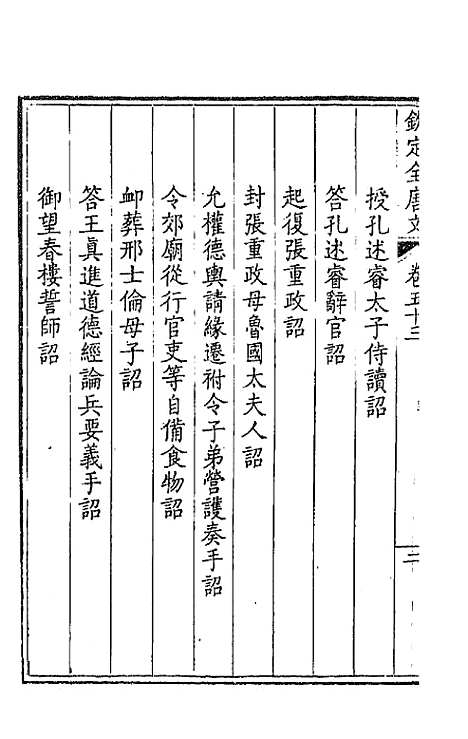 欽定全唐文 卷五十三 二
授孔述睿太子侍讀詔
答孔述睿辭官詔
起復張重政詔
封張重政母魯國太夫人詔
允權德輿請緣遷祔令子弟營護奏手詔
令郊廟從行官吏等自備食物詔
卹葬邢士倫母子詔
答王真進道德經論兵要義手詔
御望春樓誓師詔